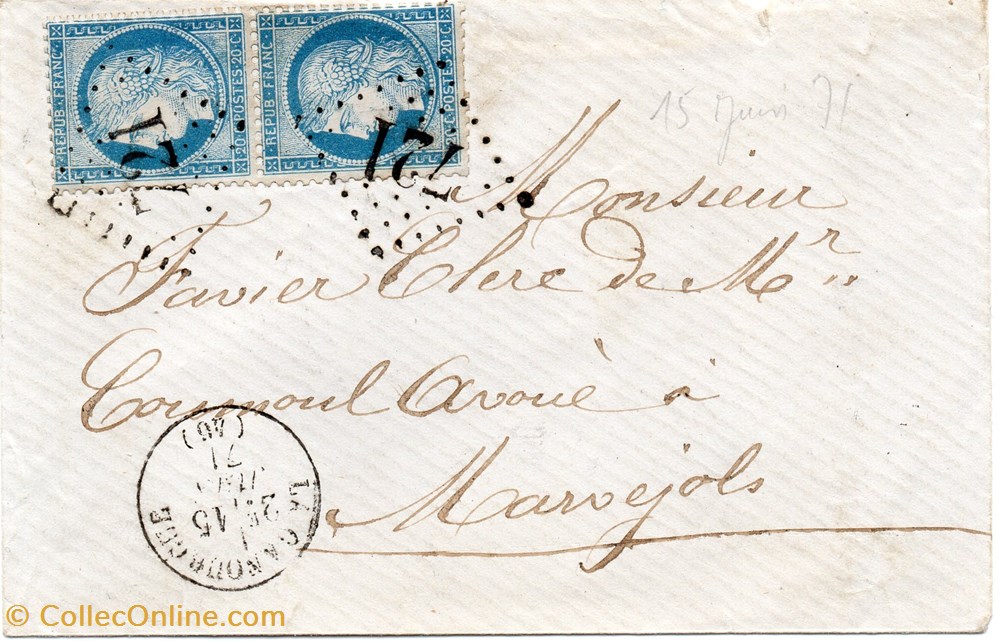 REPUB · FRANC · 20 · C · POSTES · 20 · C ·
REPUB · FRANC · 20 · C · POSTES · 20 · C ·
721
721
15 Juin 71
Monsieur
Favier Clerc de Mr
Avoué à
Marvejols
LA CANOURGUE
2E 15
JUIN
71
(46)
© CollecOnline.com